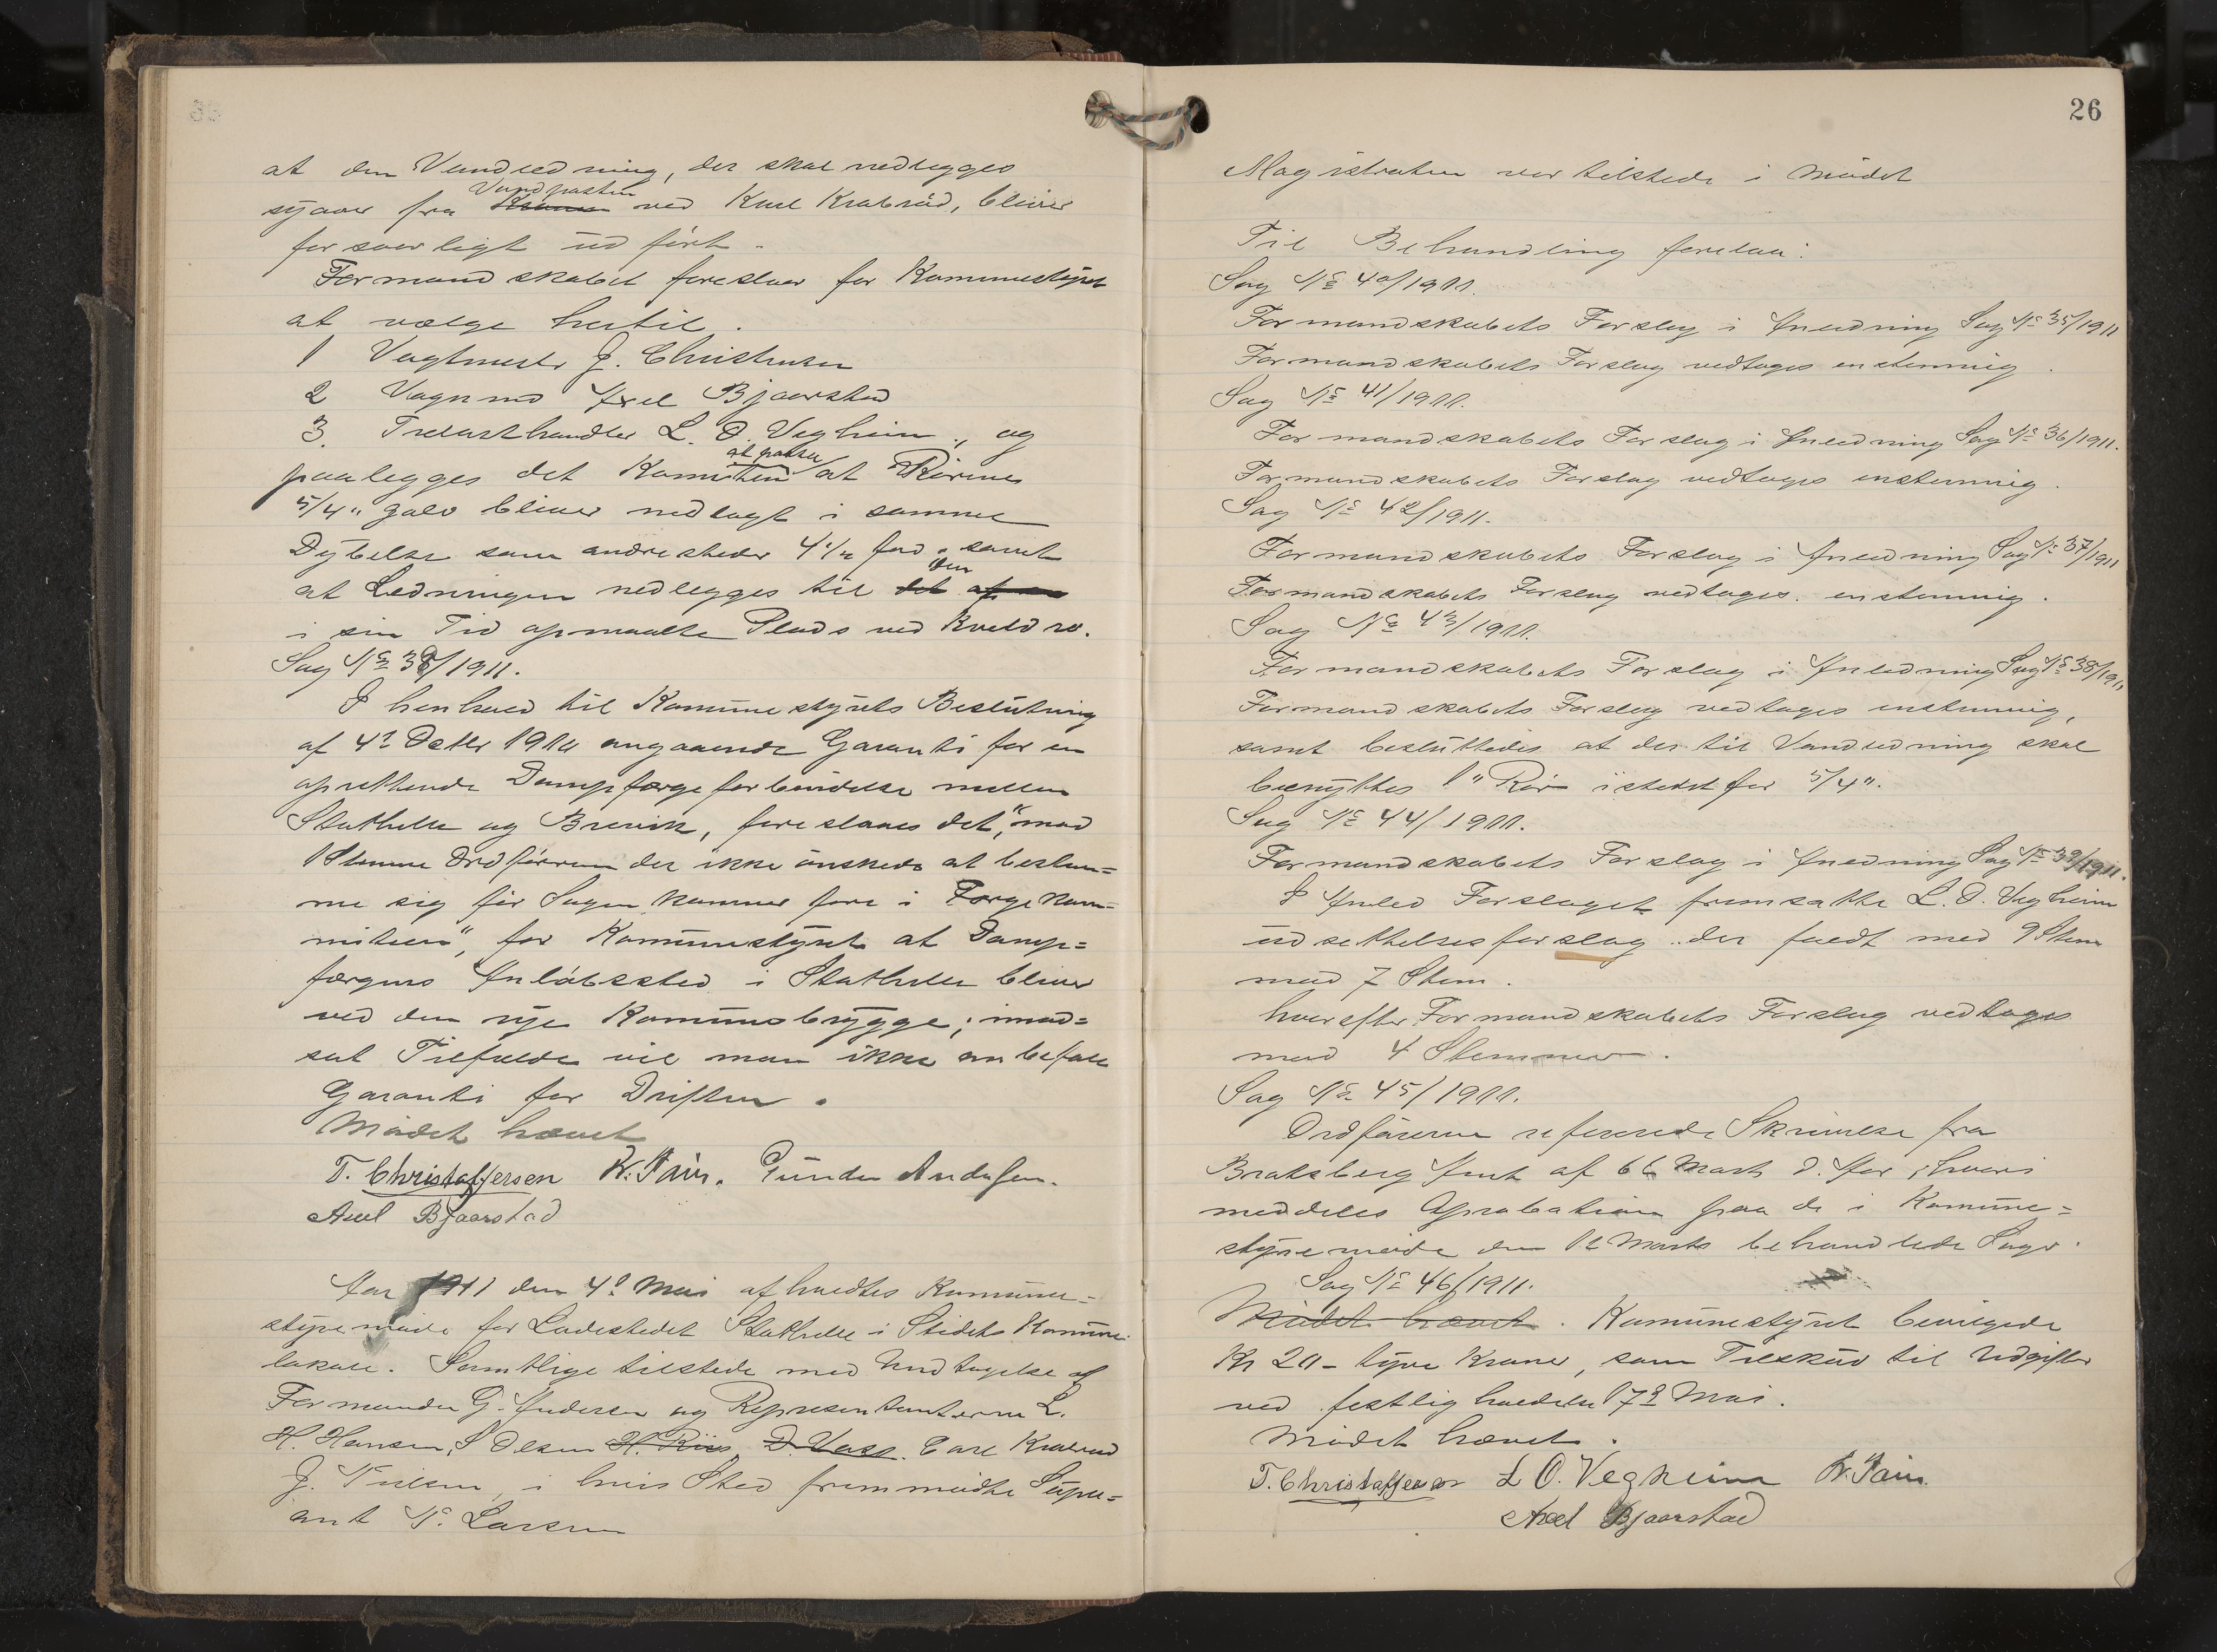 at den Vandledning, der skal nedlegges
Vandposten
syaver fra Kranen ved Karl Krabrød, bliver
forsvarligt udført.
Formandskabet foreslaar for Kommunestyret
at vælge hertil.
1 Vagtmester J. Christensen
2 Vognmd Axel Bjaarstad
3. Trelasthandler L. O. Vegheim, og
at passe
paalegges det Komiteen at Rørene
5/4" galv bliver nedlagt i samme
Dybelse som andresteder 4 1/2 fod, samt
den
at Ledningen nedlegges til det af
i sin Tid opmaalte Plads ved Kveldro.
Sag No 39/1911.
I henhold til Kommunestyrets Beslutning
af 4de Octbr 1910 angaaende Garanti for en
oprettende Dampfærgeforbindelse mellem
Stathelle og Brevik, foreslaaes det, "mod
1 Stemme Ordføreren der ikke ønskede at bestem=
me sig før Sagen kommer fore i Færgekom=
miteen", for Kommunestyret at Damp=
færgens Anløbssted i Stathelle bliver
ved den nye Kommunebrygge; imod=
sat Tilfælde vil man ikke anbefale
Garanti for Driften.
Mødet hævet
T. Christoffersen N. Pain. Gunder Andersen.
Axel Bjaarstad
Aar 1911 den 4de Mai afholdtes Kommune=
styremøde for Ladestedet Stathelle i Stedets Kommune
lokale. Samtlige tilstede med Undtagelse af
Formanden G. Andersen og Representanterne L.
H. Hansen, S Olsen H. Riis, D. Vase. Carl Krabrød
J. Nilsen, i hvis Sted fremmødte Supple=
ant N. Larsen
26
Magistraten var tilstede i Mødet
Til Behandling forelaa:
Sag No 40/1911.
Formandskabets Forslag i Anledning Sag No 35/1911
Formandskabets Forslag vedtages enstemmig.
Sag No 41/1911.
Formandskabets Forslag i Anledning Sag No 36/1911.
Formandskabets Forslag vedtages enstemmig.
Sag No 42/1911.
Formandskabets Forslag i Anledning Sag No 37/1911
Formandskabets Forslag vedtages enstemmig.
Sag No 43/1911.
Formandskabets Forslag i Anledning Sag No 38/1911
Formandskabets Forslag vedtages enstemmig,
samt besluttedes at der til Vandledning skal
benyttes 1" Rør istedet for 5/4".
Sag No 44/1911.
Formandskabets Forslag i Anledning Sag No 39/1911.
I Anled Forslaget fremsatte L. O. Vegheim
udsettelsesforslag der faldt med 9 Stem
mod 7 Stem.
hvorefter Formandskabets Forslag vedtages
mod 4 Stemmer.
Sag No 45/1911.
Ordføreren refererede Skrivelse fra
Bratsberg Amt af 66 Marts d. Aar, hvori
meddeles Aprobation paa de i Kommune=
styremøde den 1ste Marts behandlede Sager.
Sag No 46/1911.
Mødet hævet. Kommunestyret bevilgede
Kr 20 - tyve Kroner, som Tilskud til Udgifter
ved festligholdelse 17de Mai.
Mødet hævet.
T. Christoffersen L O. Vegheim N. Pain.
Axel Bjaarstad